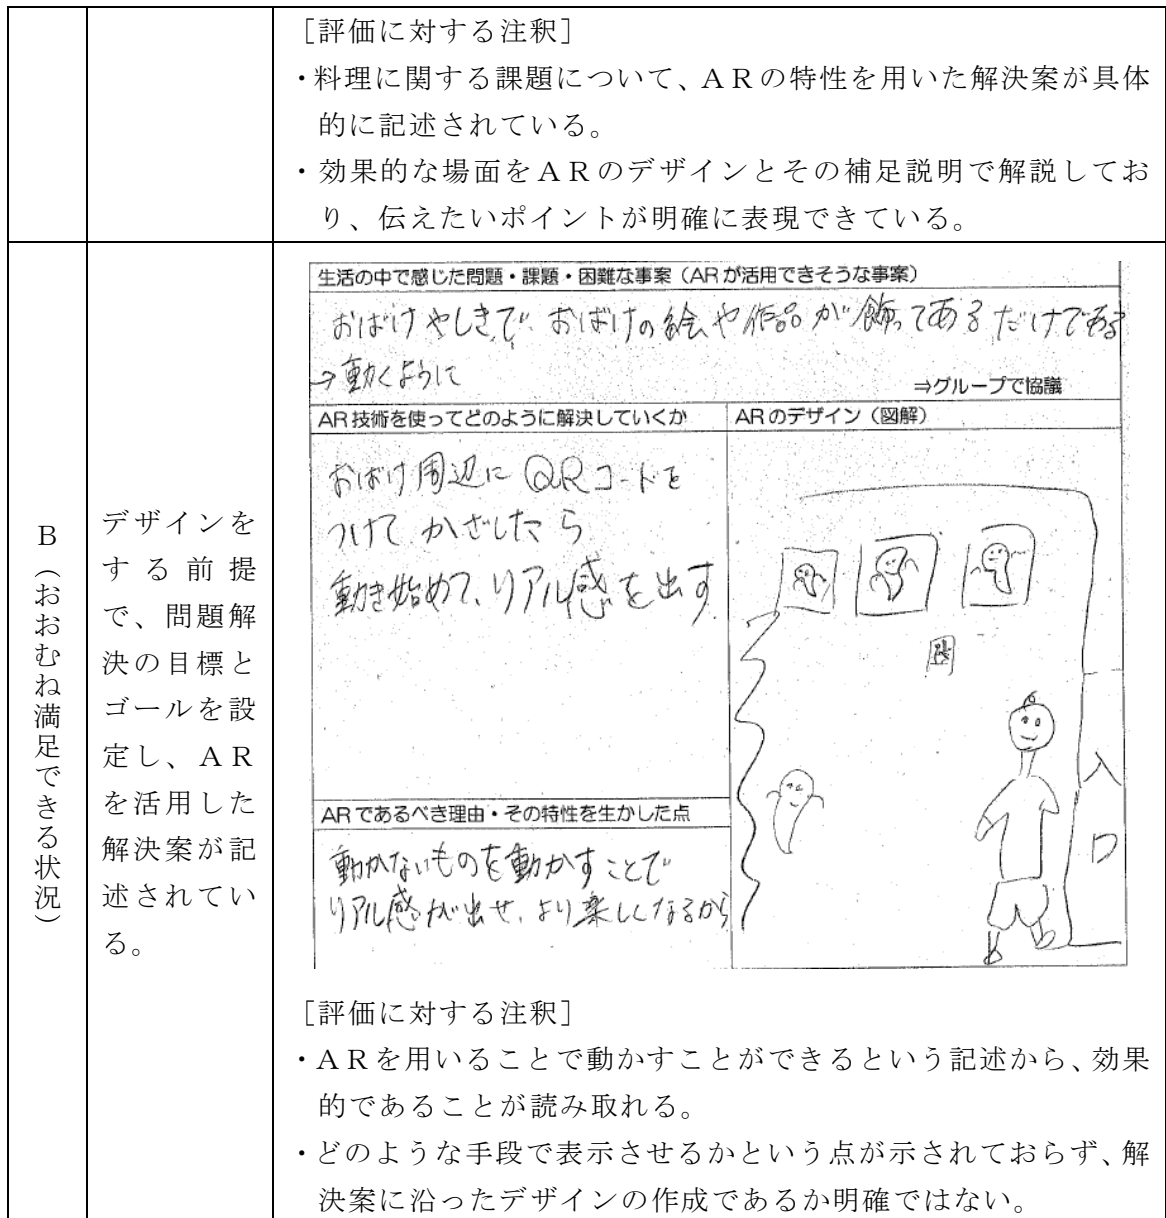 ［評価に対する注釈］
・料理に関する課題について、ＡＲの特性を用いた解決案が具体
的に記述されている。
・効果的な場面をＡＲのデザインとその補足説明で解説してお
り、伝えたいポイントが明確に表現できている。
Ｂ（おおむね満足できる状況）
デザインを
する前提
で、問題解
決の目標と
ゴールを設
定し、ＡＲ
を活用した
解決案が記
述されてい
る。
生活の中で感じた問題・課題・困難な事案（ARが活用できそうな事案）
おばけやしきで、おばけの絵や作品が飾ってあるだけである
→動くように
⇒グループで協議
AR技術を使ってどのように解決していくか
おばけ周辺にQRコードを
つけてかざしたら
動き始めて、リアル感を出す
ARであるべき理由・その特性を生かした点
動かないものを動かすことで
リアル感が出せ、より楽しくなるから
ARのデザイン（図解）
入口
［評価に対する注釈］
・ＡＲを用いることで動かすことができるという記述から、効果
的であることが読み取れる。
・どのような手段で表示させるかという点が示されておらず、解
決案に沿ったデザインの作成であるか明確ではない。